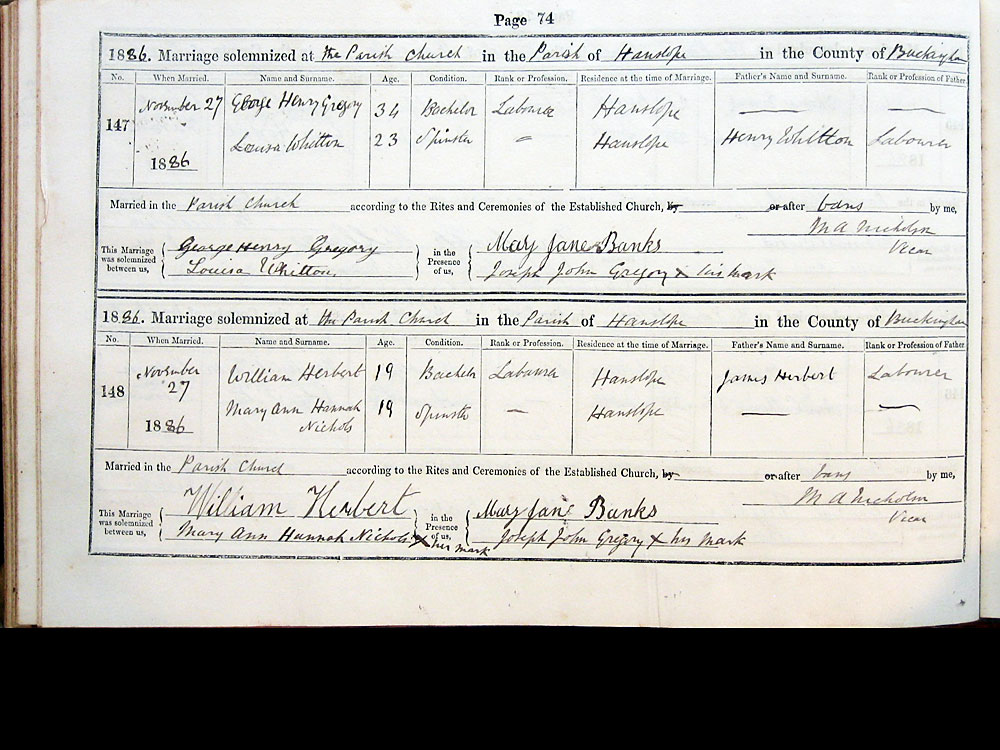 Page 74
1886. Marriage solemnized at the Parish Church in the Parish of Hanslope in the County of Buckingham
No. When Married. Name and Surname. Age. Condition. Rank or Profession. Residence at the time of Marriage. Father's Name and Surname. Rank or Profession of Father
147 November 27 George Henry Gregory 34 Bachelor Labourer Hanslope — —
1886 Louisa Whitton 23 Spinster — Hanslope Henry Whitton Labourer
Married in the Parish Church according to the Rites and Ceremonies of the Established Church, by or after bans by me,
M A Nicholson
Vicar
This Marriage was solemnized between us, George Henry Gregory in the Presence of us, Mary Jane Banks
Louisa Whitton Joseph John Gregory x his mark
1886. Marriage solemnized at the Parish Church in the Parish of Hanslope in the County of Buckingham
No. When Married. Name and Surname. Age. Condition. Rank or Profession. Residence at the time of Marriage. Father's Name and Surname. Rank or Profession of Father
148 November 27 William Herbert 19 Bachelor Labourer Hanslope James Herbert Labourer
1886 Mary Ann Hannah Nichols 19 Spinster — Hanslope — —
Married in the Parish Church according to the Rites and Ceremonies of the Established Church, by or after bans by me,
M A Nicholson
Vicar
This Marriage was solemnized between us, William Herbert in the Presence of us, Mary Jane Banks
Mary Ann Hannah Nichols x her mark Joseph John Gregory x his mark